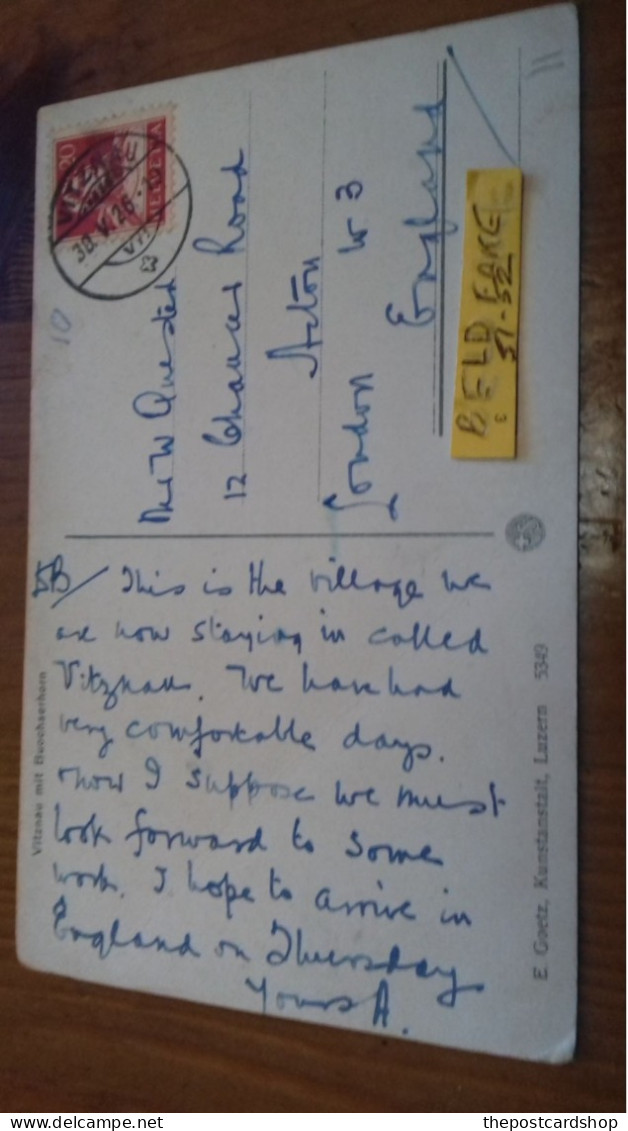 Vitznau mit Buochserhorn
5B/ This is the village we
are now staying in called
Vitznau. We have had
very comfortable days.
now I suppose we must
look forward to some
work. I hope to arrive in
England on Thursday
Yours A.
E. Goetz, Kunstanstalt, Luzern 5349
20
HELVETIA
VITZNAU
30.V.26
10
W Quested
12 Chaucer Road
Acton
London W 3
England
BELD FAKE
51-52
3
11
delcampe.net
thepostcardshop